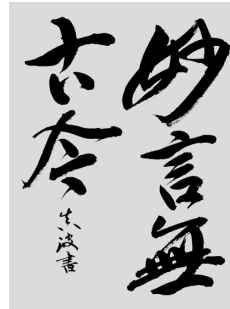 妙言無
古今
真波書